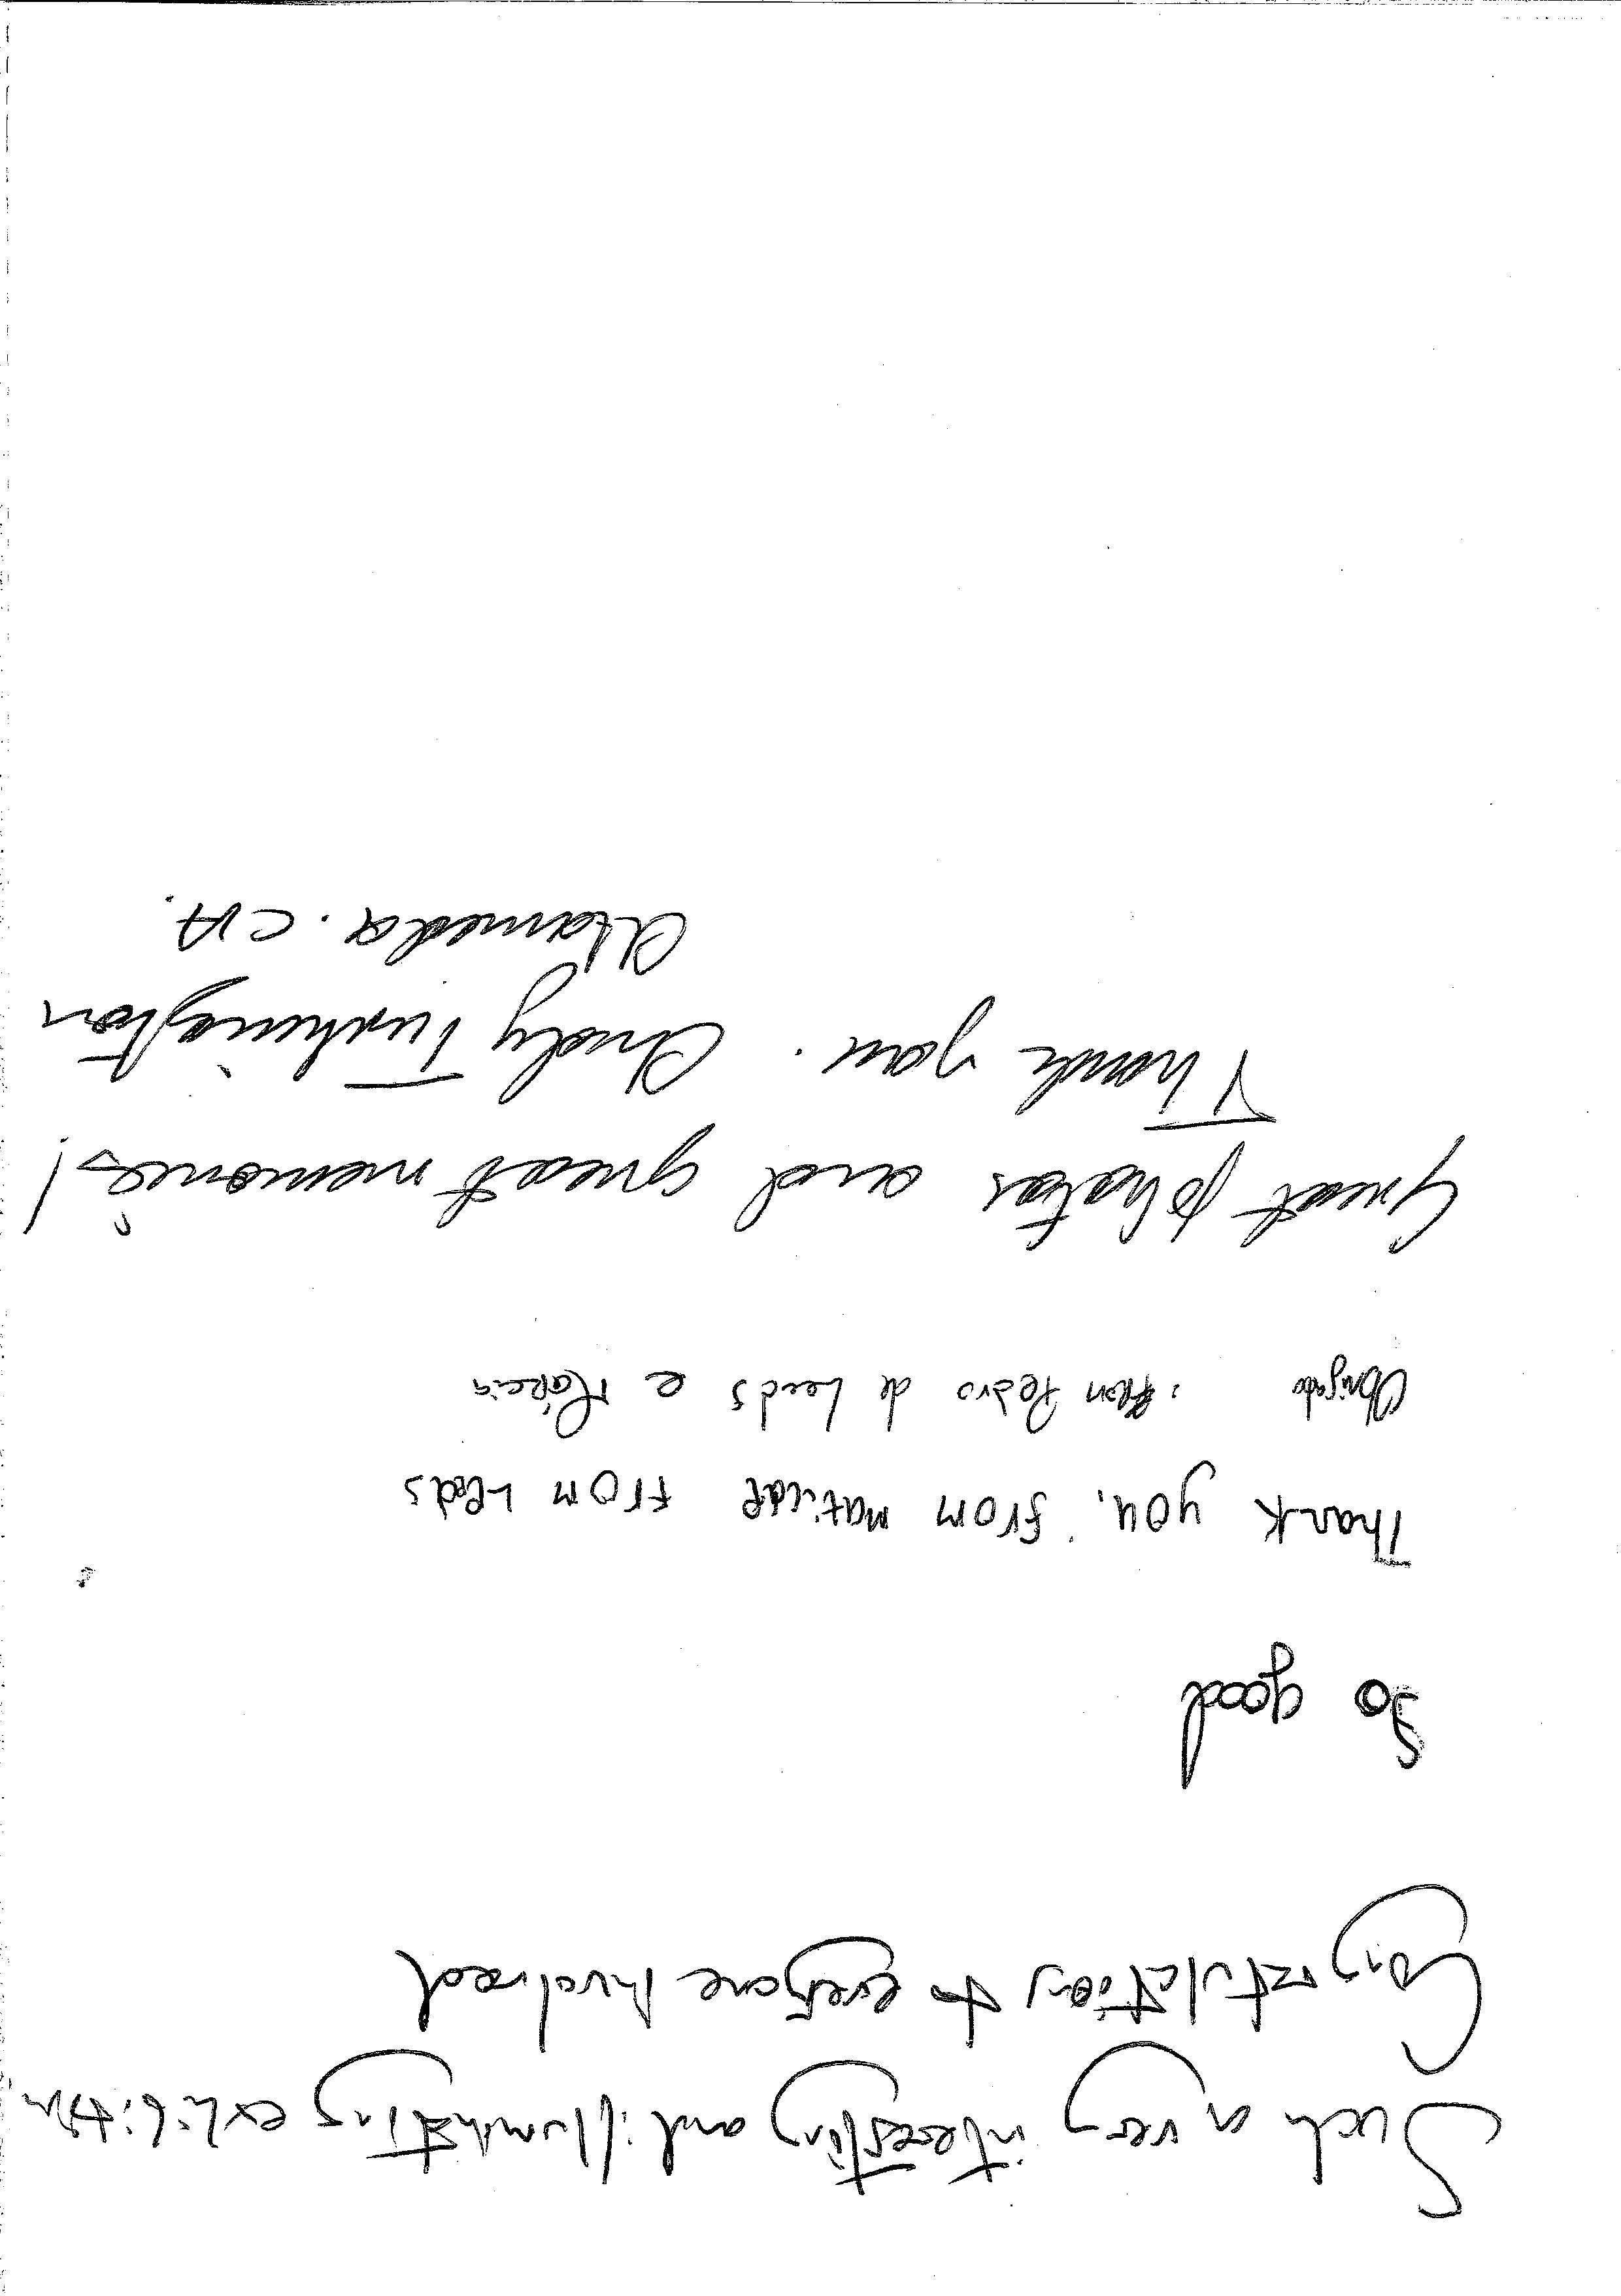 Such a very interesting and illuminating exhibition
Congratulations to everyone involved
So good
Thank you, from Matilde from Leeds
Obrigado Pedro de Leeds e Márcia
Great photos and great memories!
Thank you. Andy Tushington
Alameda. CA.